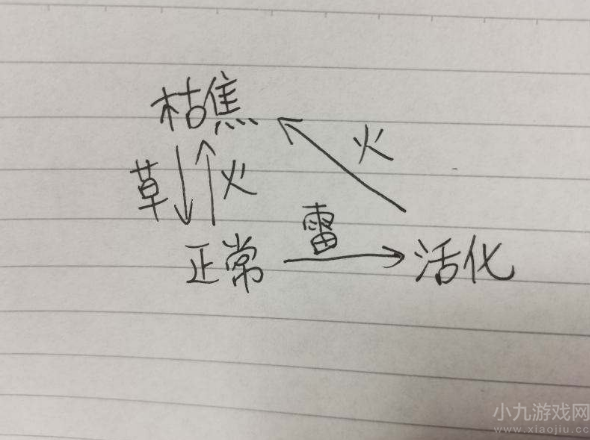 枯焦
火
草
火
雷
正常
活化
小九游戏网
www.xiaojiu.com